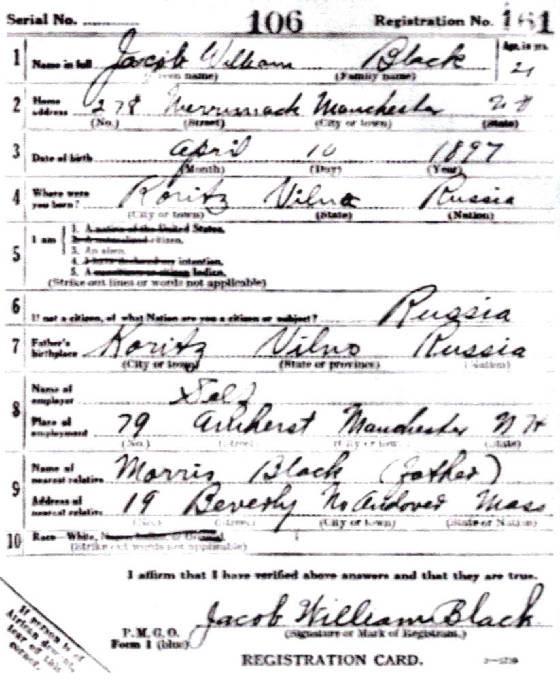 Serial No. 106 Registration No. 161
1 Name in full Jacob William Black Age, in yrs.
(Given name) (Family name) 21
2 Home address 278 Merrimack Manchester N H
(No.) (Street) (City or town) (State)
3 Date of birth April 10 1897
(Month) (Day) (Year)
4 Where were you born? Koritz Vilna Russia
(City or town) (State) (Nation)
5 I am
1. A native of the United States.
2. A naturalized citizen.
3. An alien.
4. I have declared my intention.
5. A noncitizen or citizen Indian.
(Strike out lines or words not applicable)
6 If not a citizen, of what Nation are you a citizen or subject? Russia
7 Father's birthplace Koritz Vilno Russia
(City or town) (State or province) (Nation)
8 Name of employer Self
Place of employment 79 Amherst Manchester N H
(No.) (Street) (City or town) (State)
9 Name of nearest relative Morris Black (father)
Address of nearest relative 19 Beverly No Andover Mass
(No.) (Street) (City or town) (State or Nation)
10 Race—White, Negro, Indian, or Oriental.
(Strike out words not applicable)
I affirm that I have verified above answers and that they are true.
P.M.G.O.
Form 1 (blue)
Jacob William Black
(Signature or Mark of Registrant.)
If person is of African descent, tear off this corner.
REGISTRATION CARD.